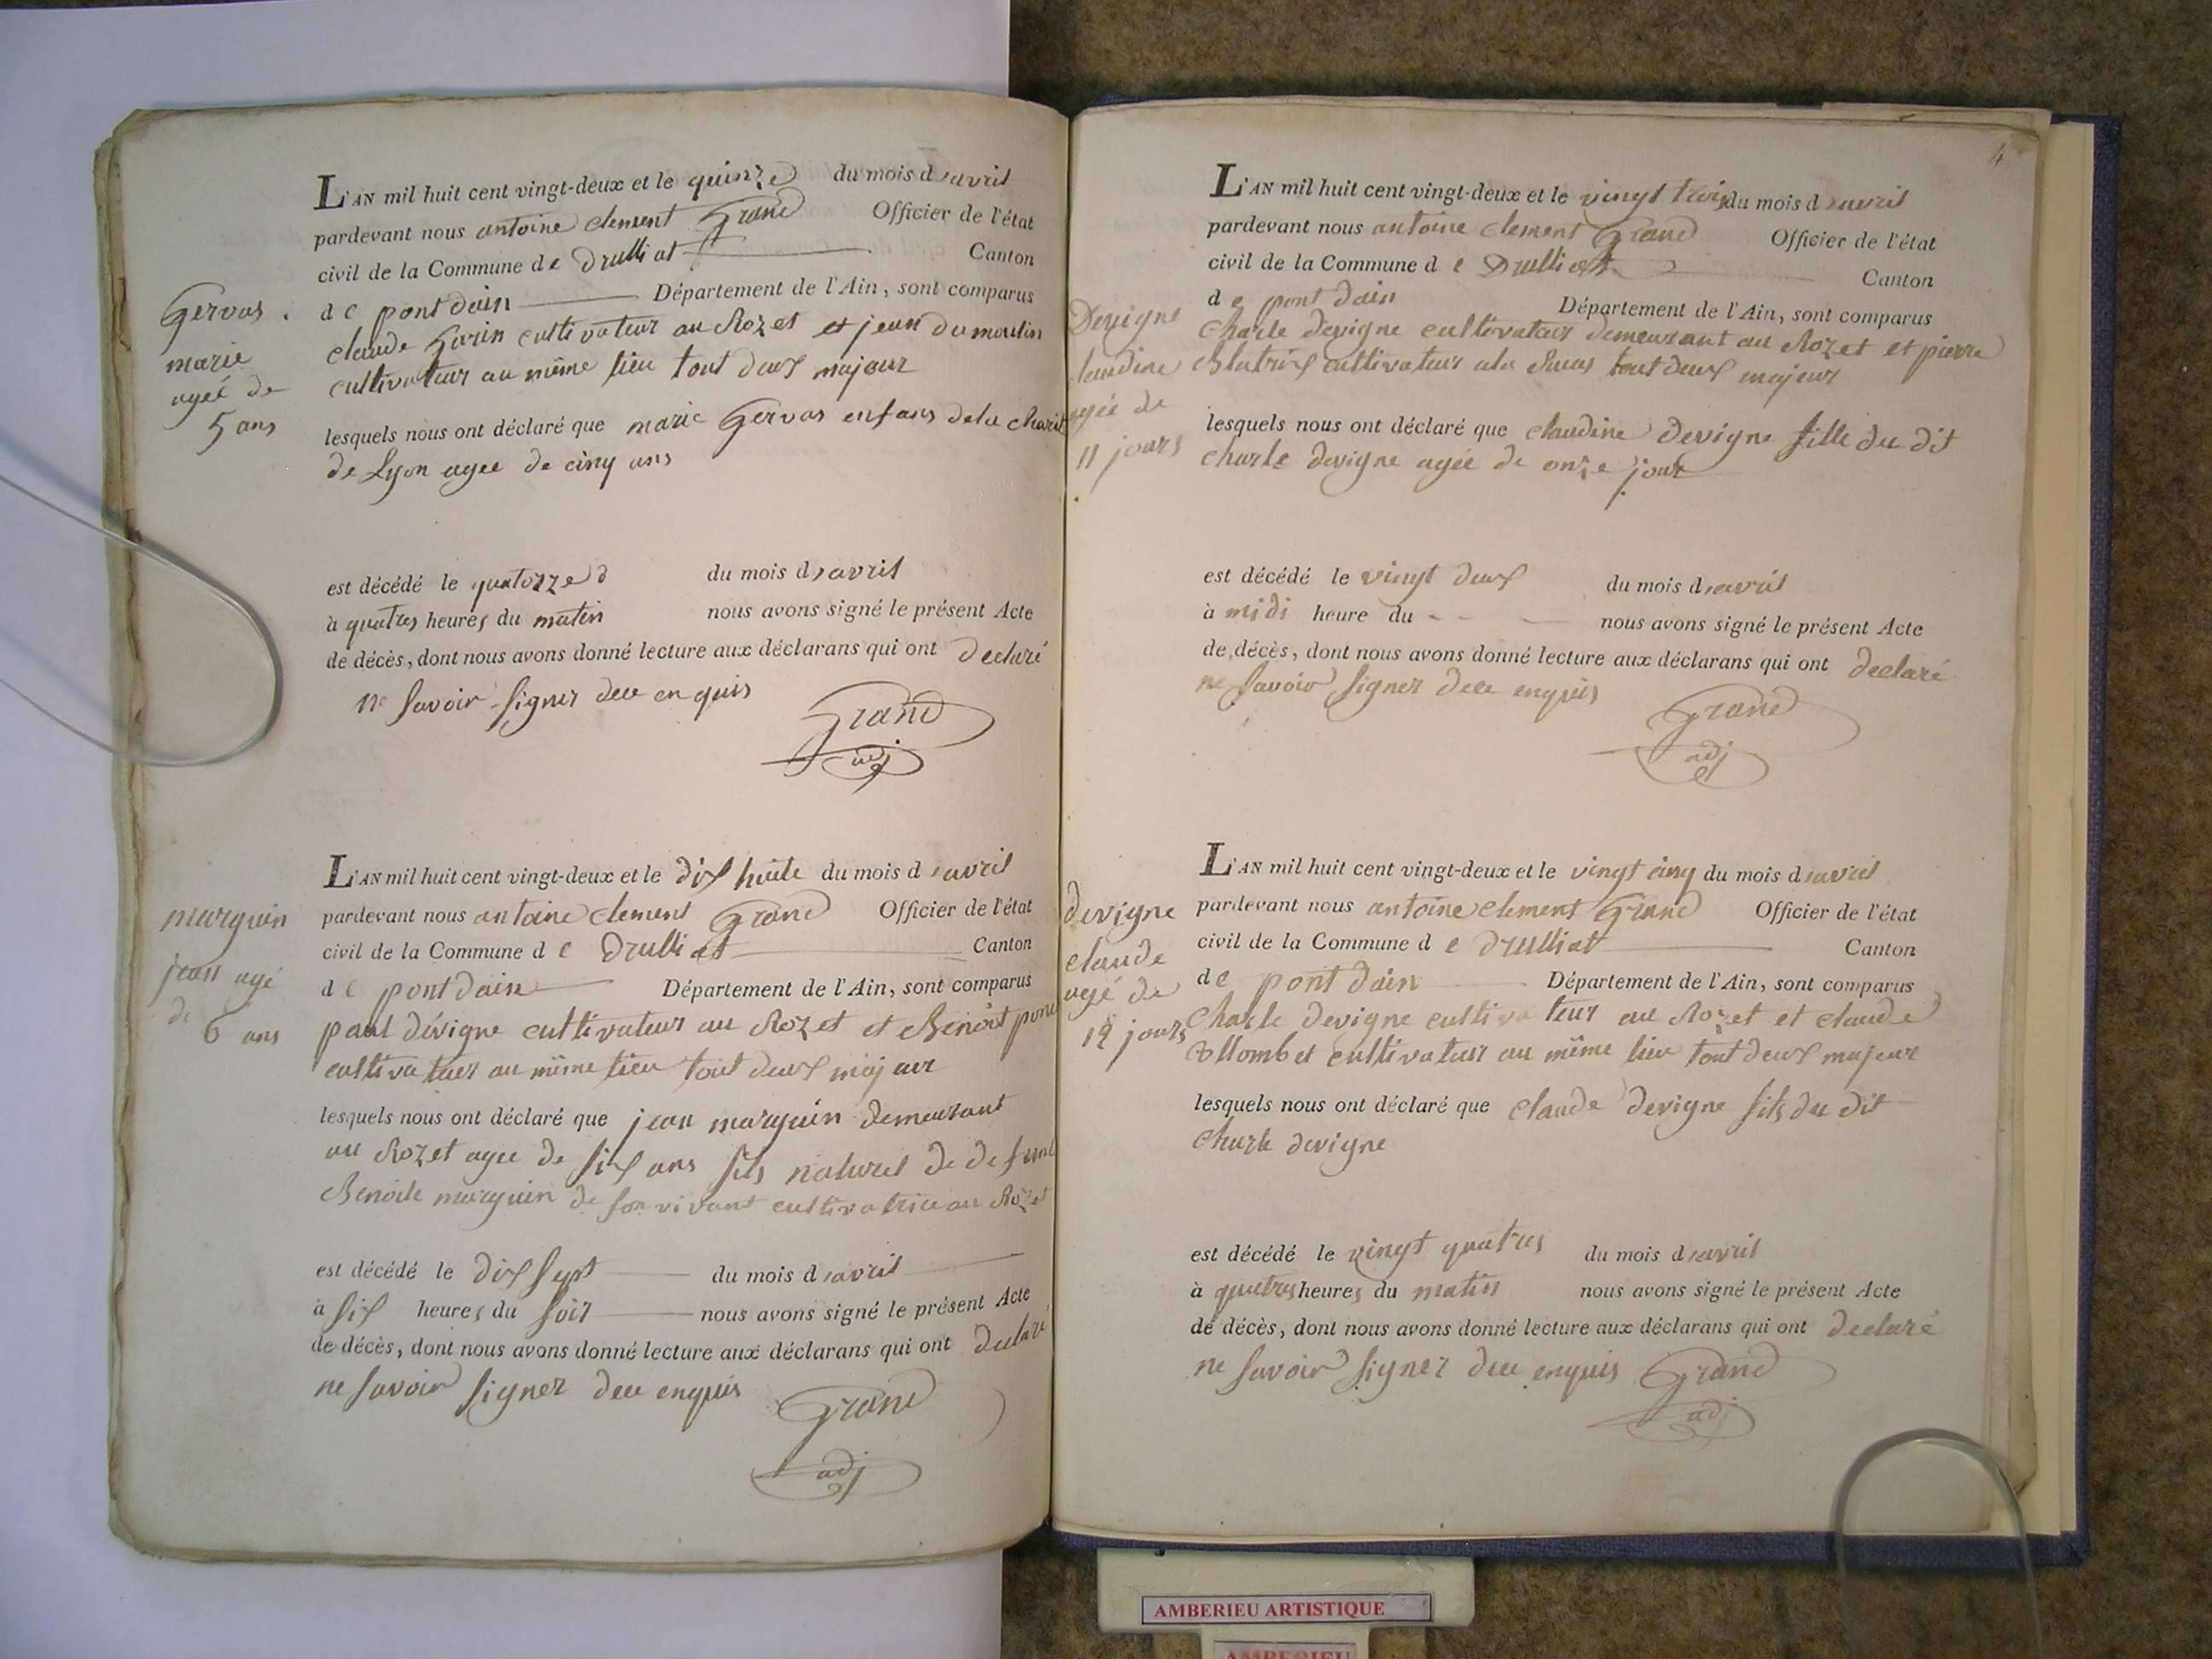 L'AN mil huit cent vingt-deux et le quinze du mois d'avril
pardevant nous antoine clement Grand Officier de l'état
civil de la Commune de Druilliat Canton
de pont dain Département de l'Ain, sont comparus
claude Gorin cultivateur au Rozet et jean dumoulin
cultivateur au même lieu tout deux majeur
lesquels nous ont déclaré que marie Gervas enfans de la charité
de Lyon agee de cinq ans
Gervas
marie
agée de
5 ans
est décédé le quatorze du mois d'avril
à quatres heures du matin nous avons signé le présent Acte
de décès, dont nous avons donné lecture aux déclarans qui ont declaré
ne savoir signer dece enquis
Grand
adj
L'AN mil huit cent vingt-deux et le dix huite du mois d'avril
pardevant nous antoine clement Grand Officier de l'état
civil de la Commune de Druilliat Canton
de pont dain Département de l'Ain, sont comparus
paul dévigne cultivateur au Rozet et Benoit
cultivateur au même lieu tout deux majeur
lesquels nous ont déclaré que jean marguin demeurant
au Rozet agee de six ans fils naturel de defunt
Benoite marguin de son vivant cultivatrice au Rozet
marguin
jean agé
de
6 ans
est décédé le dix sept du mois d'avril
à six heures du soir nous avons signé le présent Acte
de décès, dont nous avons donné lecture aux déclarans qui ont declaré
ne savoir signer dece enquis
Grand
adj
4
L'AN mil huit cent vingt-deux et le vingt trois du mois d'avril
pardevant nous antoine clement Grand Officier de l'état
civil de la Commune de Druilliat Canton
de pont dain Département de l'Ain, sont comparus
Charle devigne cultivateur demeurant au Rozet et pierre
Blatrix cultivateur ala tout deux majeur
lesquels nous ont déclaré que claudine Devigne fille du dit
charle devigne agée de onze jour
Devigne
laudine
agée de
11 jours
est décédé le vingt deux du mois d'avril
à midi heure du nous avons signé le présent Acte
de décès, dont nous avons donné lecture aux déclarans qui ont declaré
ne savoir signer dece enquis
Grand
adj
L'AN mil huit cent vingt-deux et le vingt cinq du mois d'avril
pardevant nous antoine clement Grand Officier de l'état
civil de la Commune de Druilliat Canton
de pont dain Département de l'Ain, sont comparus
Charle devigne cultivateur au Rozet et claude
Allombet cultivateur au même lieu tout deux majeur
lesquels nous ont déclaré que claude devigne fils du dit
charle devigne
devigne
claude
agé de
12 jours
est décédé le vingt quatres du mois d'avril
à quatres heures du matin nous avons signé le présent Acte
de décès, dont nous avons donné lecture aux déclarans qui ont declaré
ne savoir signer dece enquis
Grand
adj
AMBERIEU ARTISTIQUE
AMBERIEU